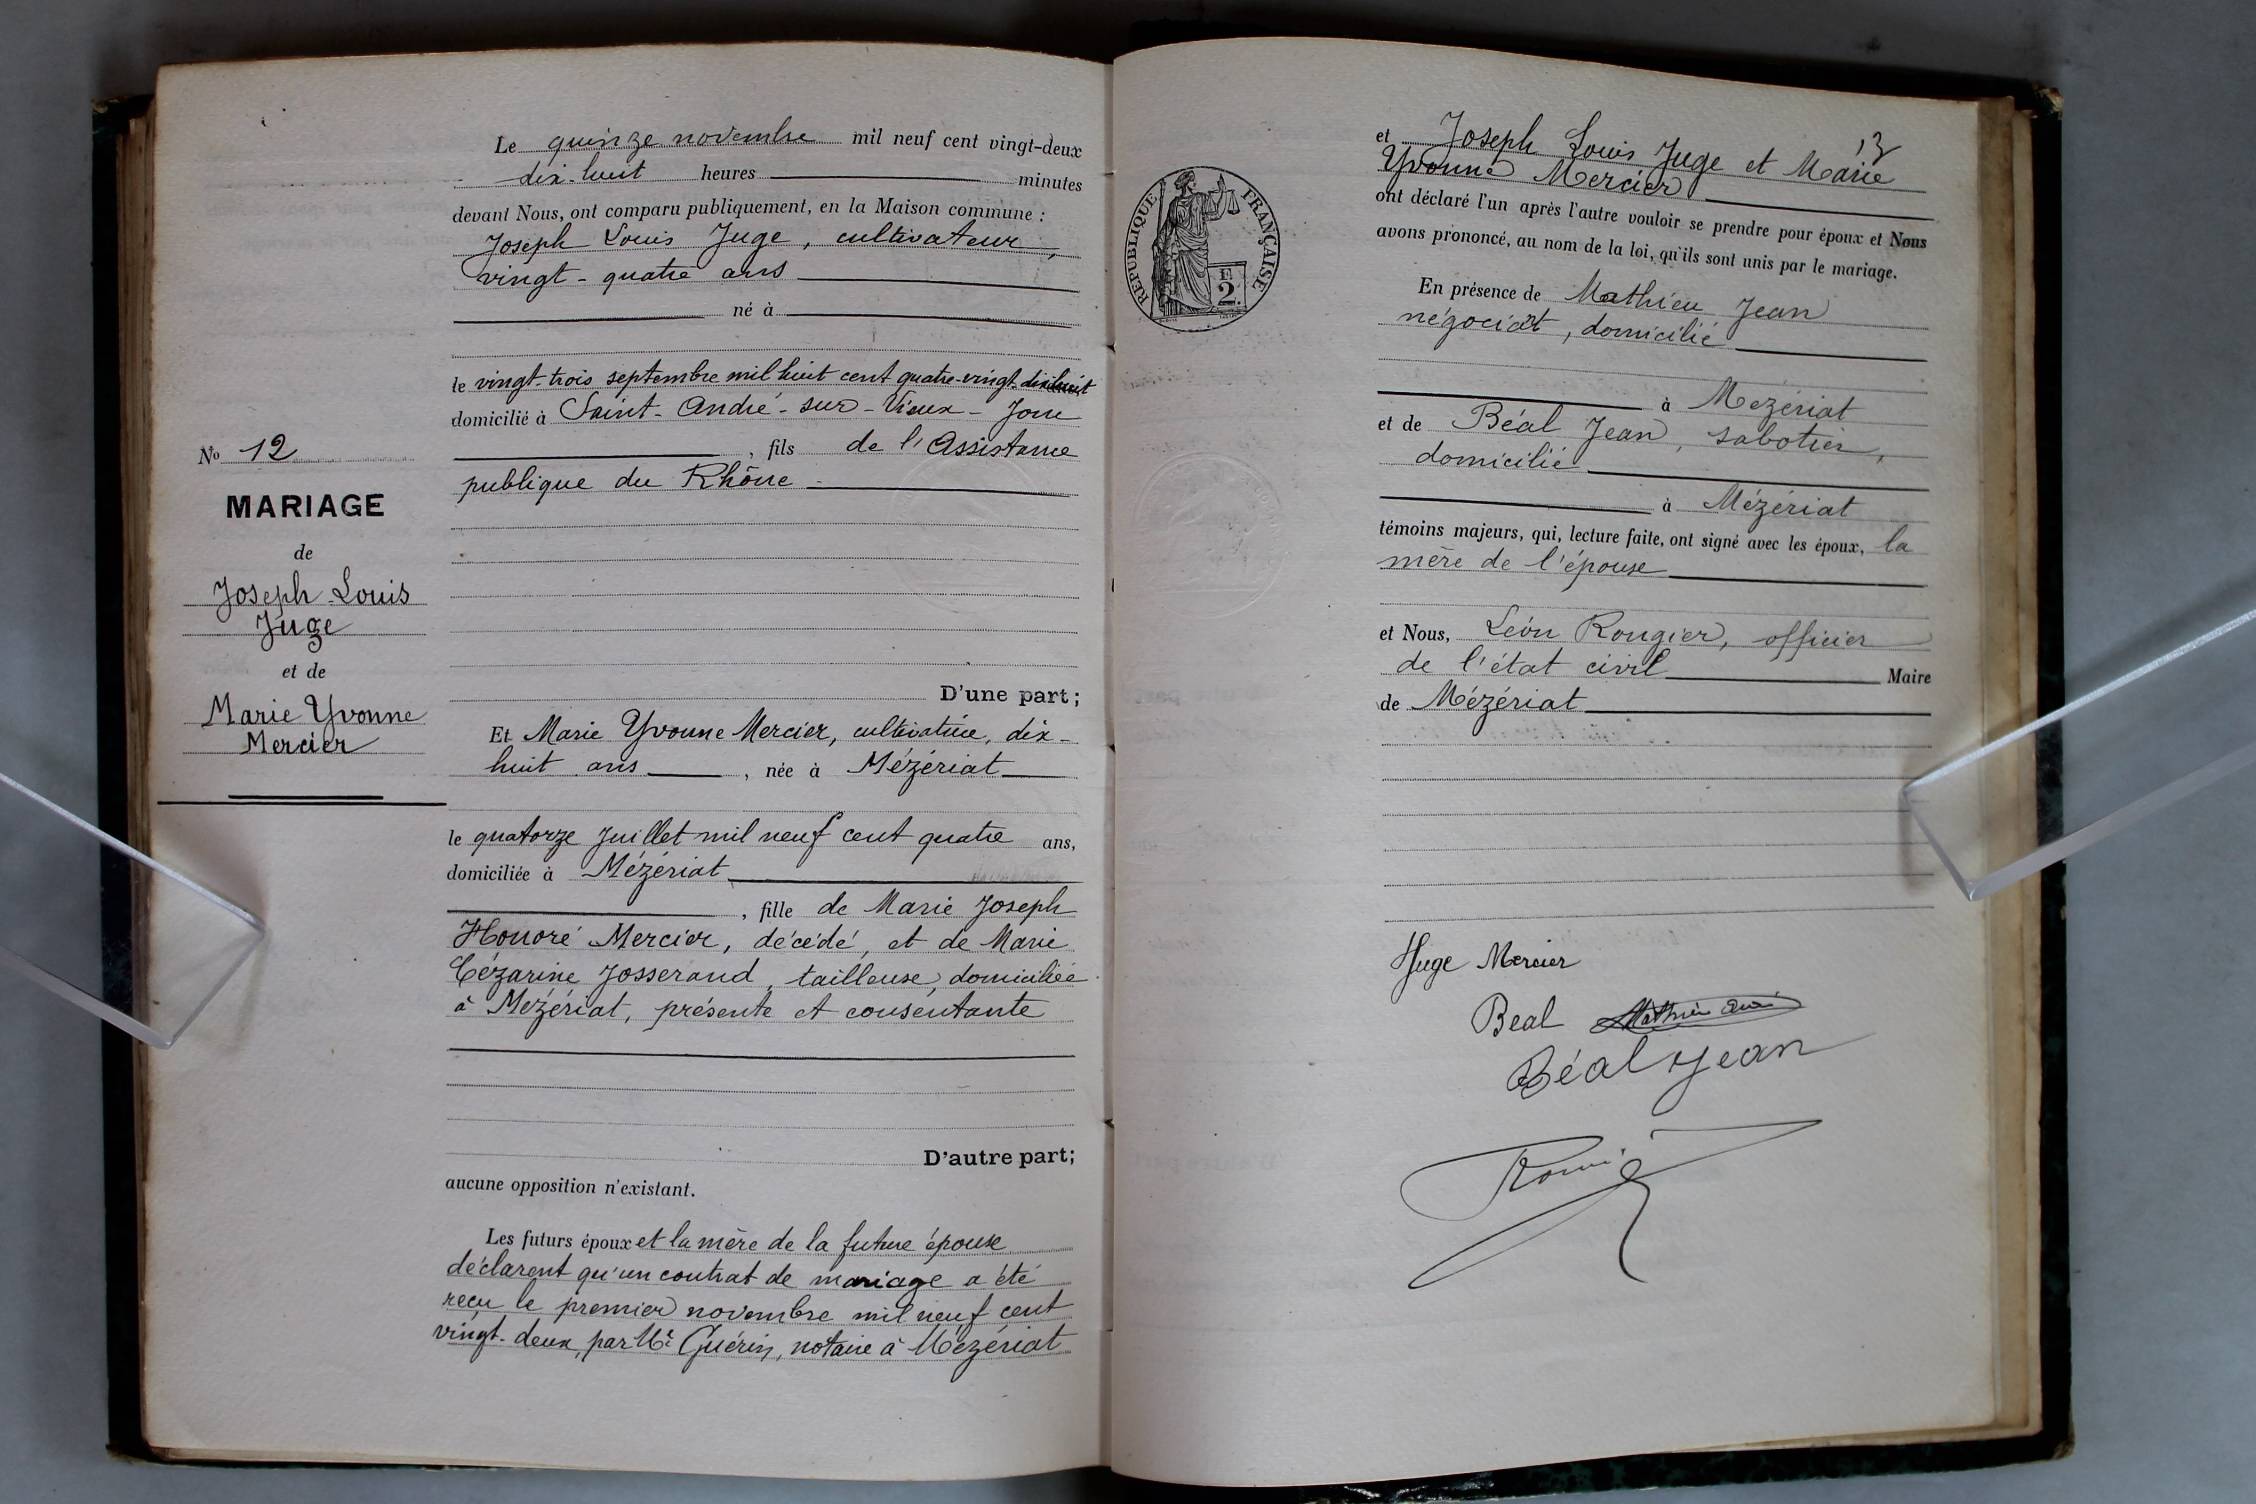 Le quinze novembre mil neuf cent vingt-deux
dix-huit heures minutes
devant Nous, ont comparu publiquement, en la Maison commune :
Joseph Louis Juge, cultivateur,
vingt-quatre ans
né à
le vingt-trois septembre mil huit cent quatre-vingt-dixhuit
domicilié à Saint-André-sur-Vieux-Jonc
, fils de l'Assistance
publique du Rhône
No 12
MARIAGE
de
Joseph-Louis
Juge
et de
Marie Yvonne
Mercier
D'une part;
Et Marie Yvonne Mercier, cultivatrice, dix-
huit ans , née à Mézériat
le quatorze Juillet mil neuf cent quatre ans,
domiciliée à Mézériat
, fille de Marie Joseph
Honoré Mercier, décédé, et de Marie
Cézarine Josserand, tailleuse, domiciliée
à Mézériat, présente et consentante
D'autre part;
aucune opposition n'existant.
Les futurs époux et la mère de la future épouse
déclarent qu'un contrat de mariage a été
reçu le premier novembre mil neuf cent
vingt-deux, par Me Guérin, notaire à Mézériat
13
et Joseph Louis Juge et Marie
Yvonne Mercier
ont déclaré l'un après l'autre vouloir se prendre pour époux et Nous
avons prononcé, au nom de la loi, qu'ils sont unis par le mariage.
RÉPUBLIQUE FRANÇAISE
2
En présence de Mathieu Jean
négociant, domicilié
à Mézériat
et de Béal Jean, sabotier,
domicilié
à Mézériat
témoins majeurs, qui, lecture faite, ont signé avec les époux, la
mère de l'épouse
et Nous, Léon Rougier, officier
de l'état civil Maire
de Mézériat
Juge Mercier
Beal Mathieu
Béal Jean